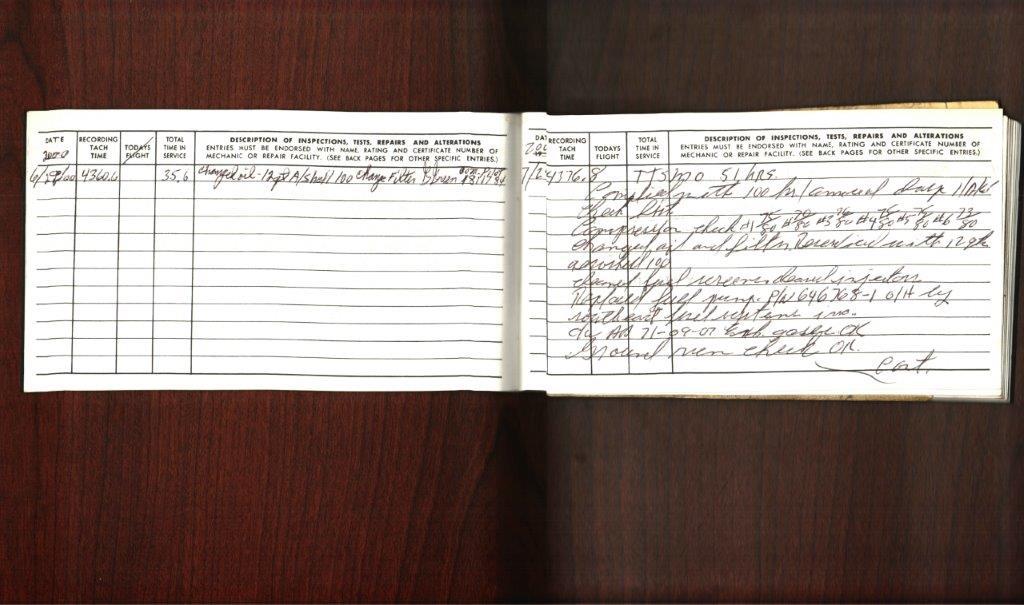 DATE RECORDING TACH TIME TODAYS FLIGHT TOTAL TIME IN SERVICE DESCRIPTION OF INSPECTIONS, TESTS, REPAIRS AND ALTERATIONS
ENTRIES MUST BE ENDORSED WITH NAME, RATING AND CERTIFICATE NUMBER OF
MECHANIC OR REPAIR FACILITY. (SEE BACK PAGES FOR OTHER SPECIFIC ENTRIES.)
2000
4360.6 35.6 changed oil - 12 qt A/Shell 100 change Filter
RECORDING TACH TIME TODAYS FLIGHT TOTAL TIME IN SERVICE DESCRIPTION OF INSPECTIONS, TESTS, REPAIRS AND ALTERATIONS
ENTRIES MUST BE ENDORSED WITH NAME, RATING AND CERTIFICATE NUMBER OF
MECHANIC OR REPAIR FACILITY. (SEE BACK PAGES FOR OTHER SPECIFIC ENTRIES.)
4376.8 TTSMO 51 hrs.
Complied with 100 hr/annual Insp
Check list
Compression check #1 75/80 #3 76/80 #4 78/80 #5 76/80 #6 73/80
Changed oil and filter Reserviced with 12 qts
aeroshell 100
cleaned fuel screens cleaned injectors
Replaced fuel pump P/N 646768-1 O/H by
fuel systems inc.
c/w AD 71-09-07 Exh gaskets OK
Ground run check OK.
Cont.